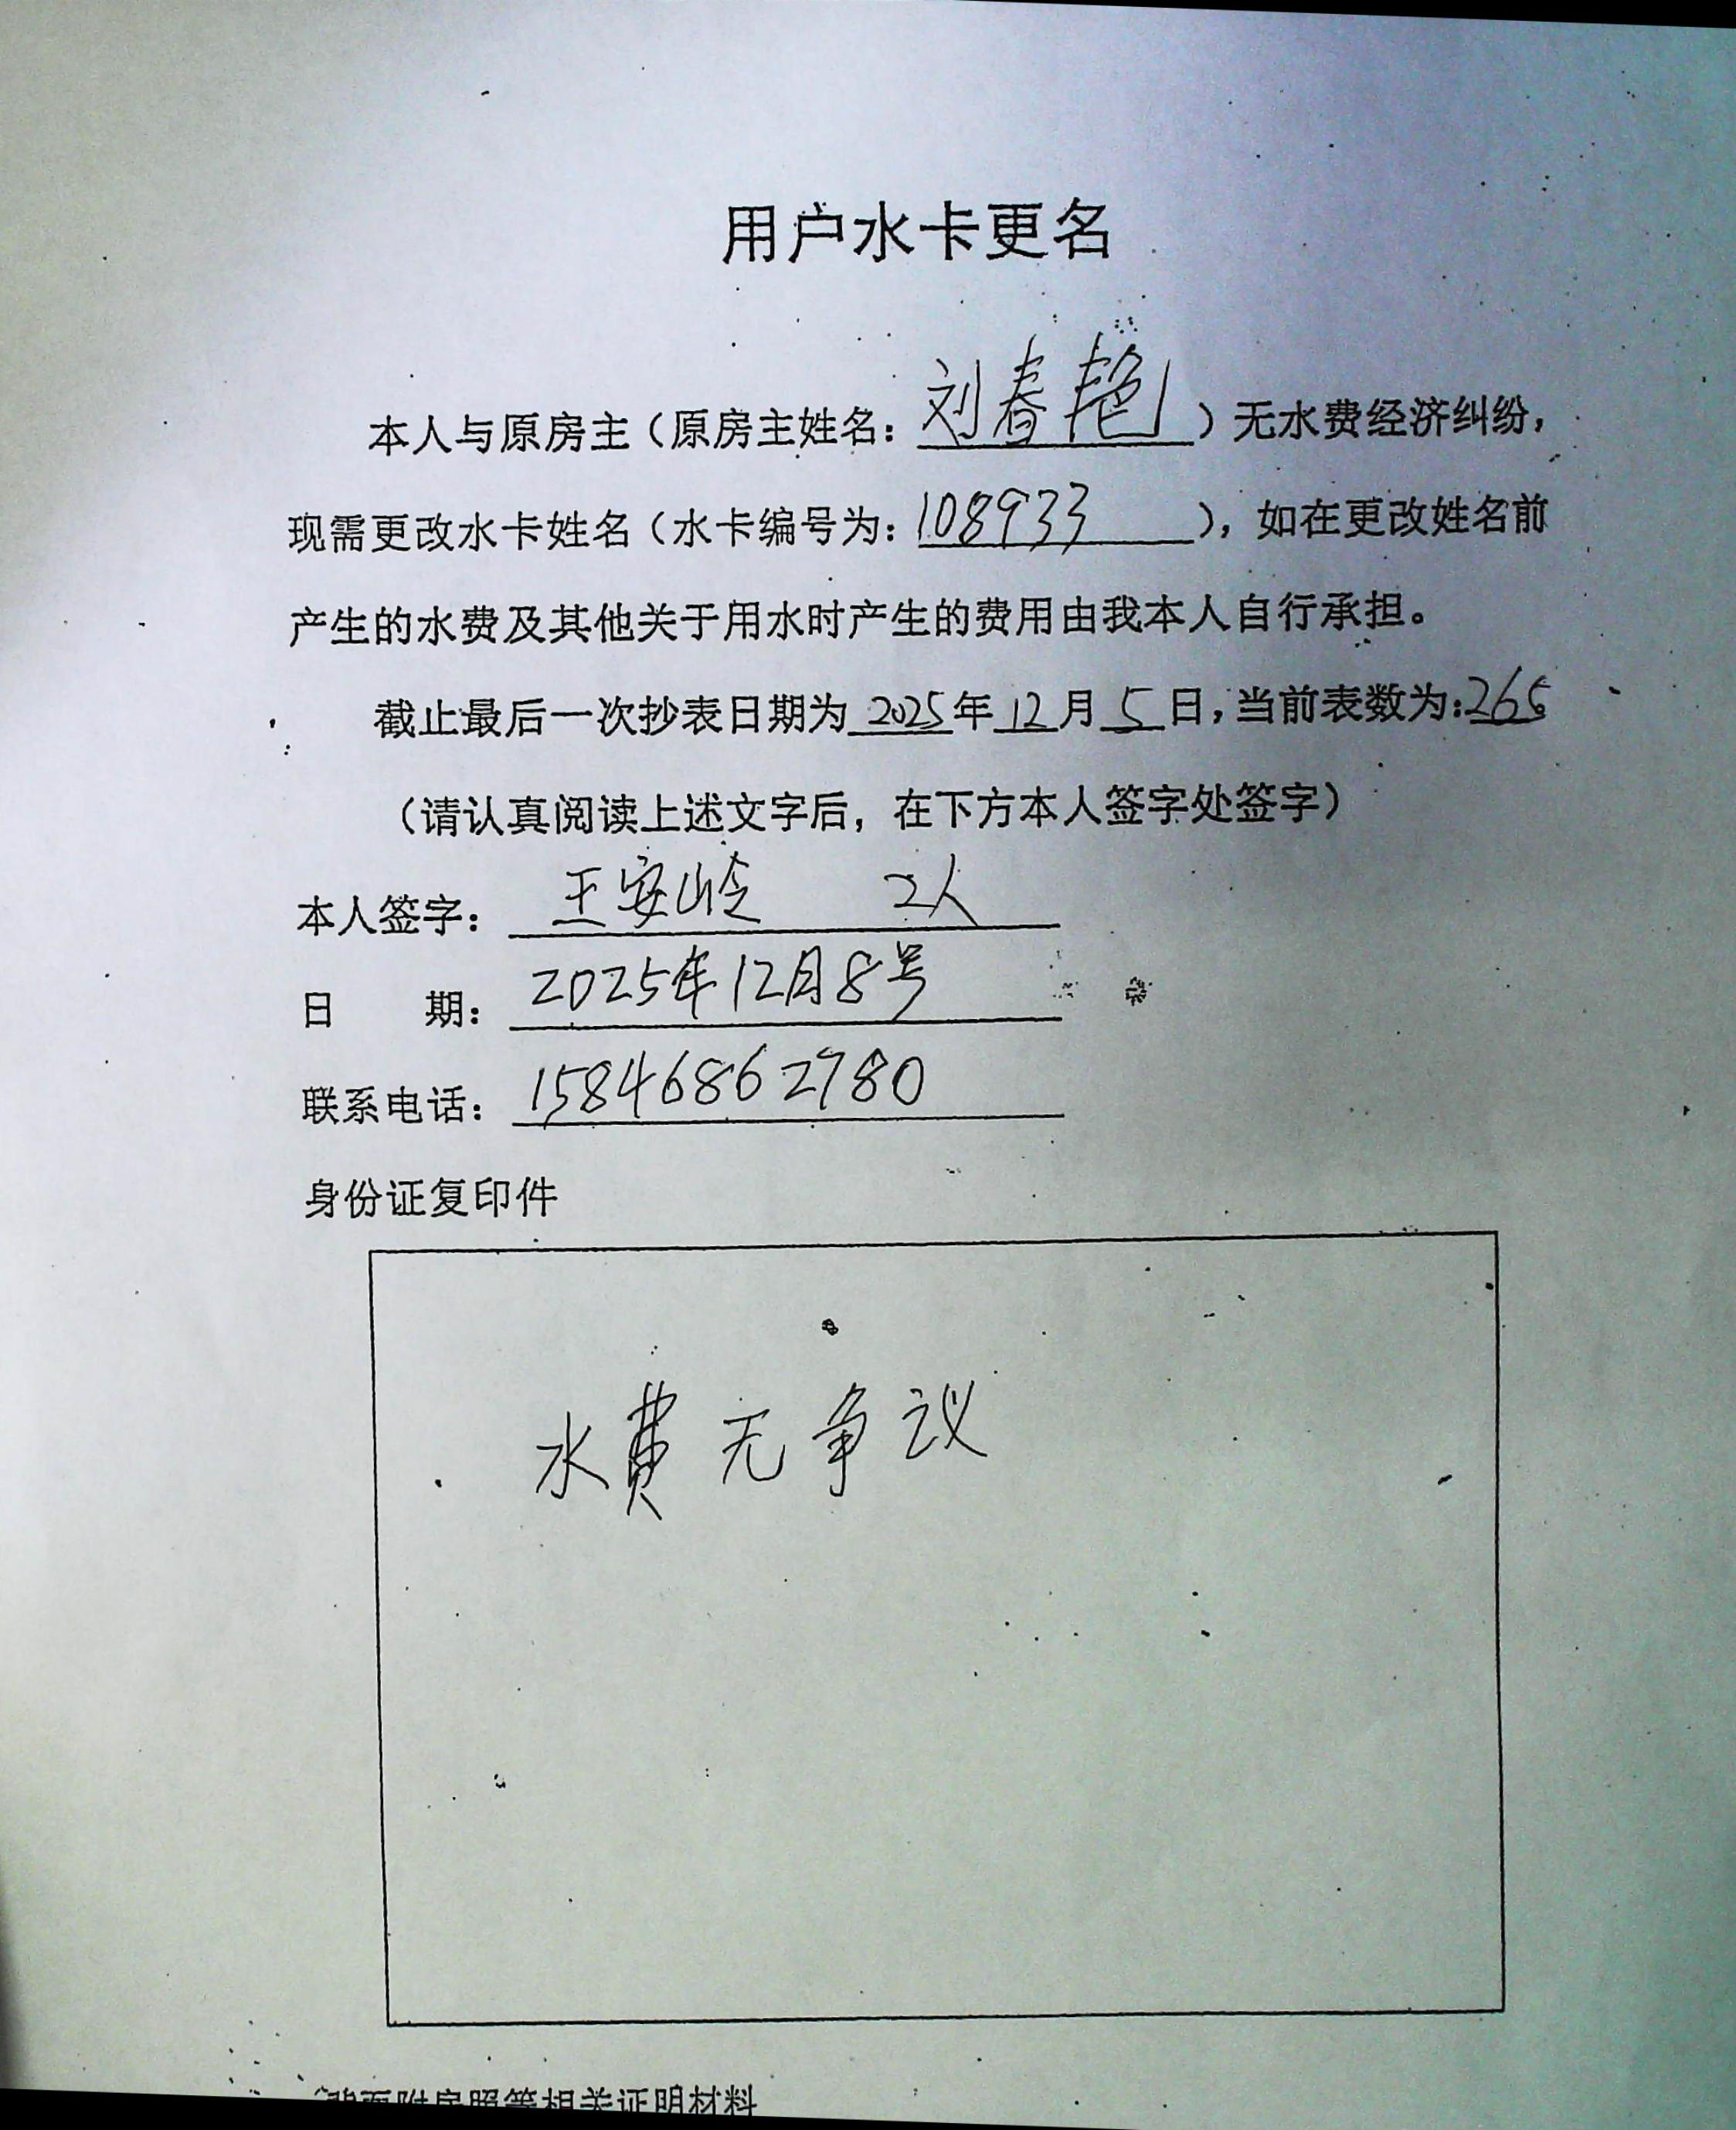 用户水卡更名
本人与原房主（原房主姓名：刘春艳）无水费经济纠纷，
现需更改水卡姓名（水卡编号为：108933），如在更改姓名前
产生的水费及其他关于用水时产生的费用由我本人自行承担。
截止最后一次抄表日期为2025年12月5日，当前表数为：265
（请认真阅读上述文字后，在下方本人签字处签字）
本人签字：王安岭 2人
日 期：2025年12月8号
联系电话：15846862780
身份证复印件
水费无争议
（背面附房照等相关证明材料